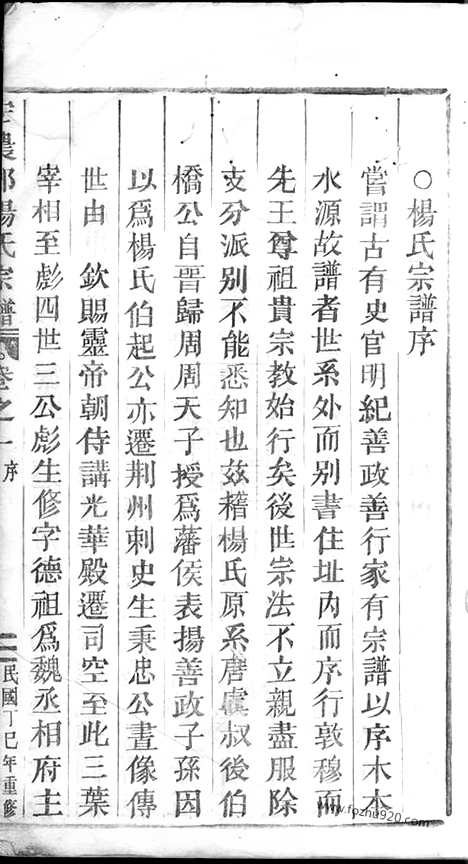 ○楊氏宗譜序
嘗謂古有史官明紀善政善行家有宗譜以序木本
水源故譜者世系外而別書住址內而序行敦穆而
先王尊祖貴宗教始行矣後世宗法不立親盡服除
支分派別不能悉知也茲稽楊氏原系唐虞叔後伯
橋公自晉歸周周天子授爲藩侯表揚善政子孫因
以爲楊氏伯起公亦遷荆州刺史生秉忠公晝像傳
世由 欽賜靈帝朝侍講光華殿遷司空至此三葉
宰相至彪四世三公彪生修字德祖爲魏丞相府主
農郡楊氏宗譜 卷之一 序 二 民國丁巳年重修
www.fozhu920.com